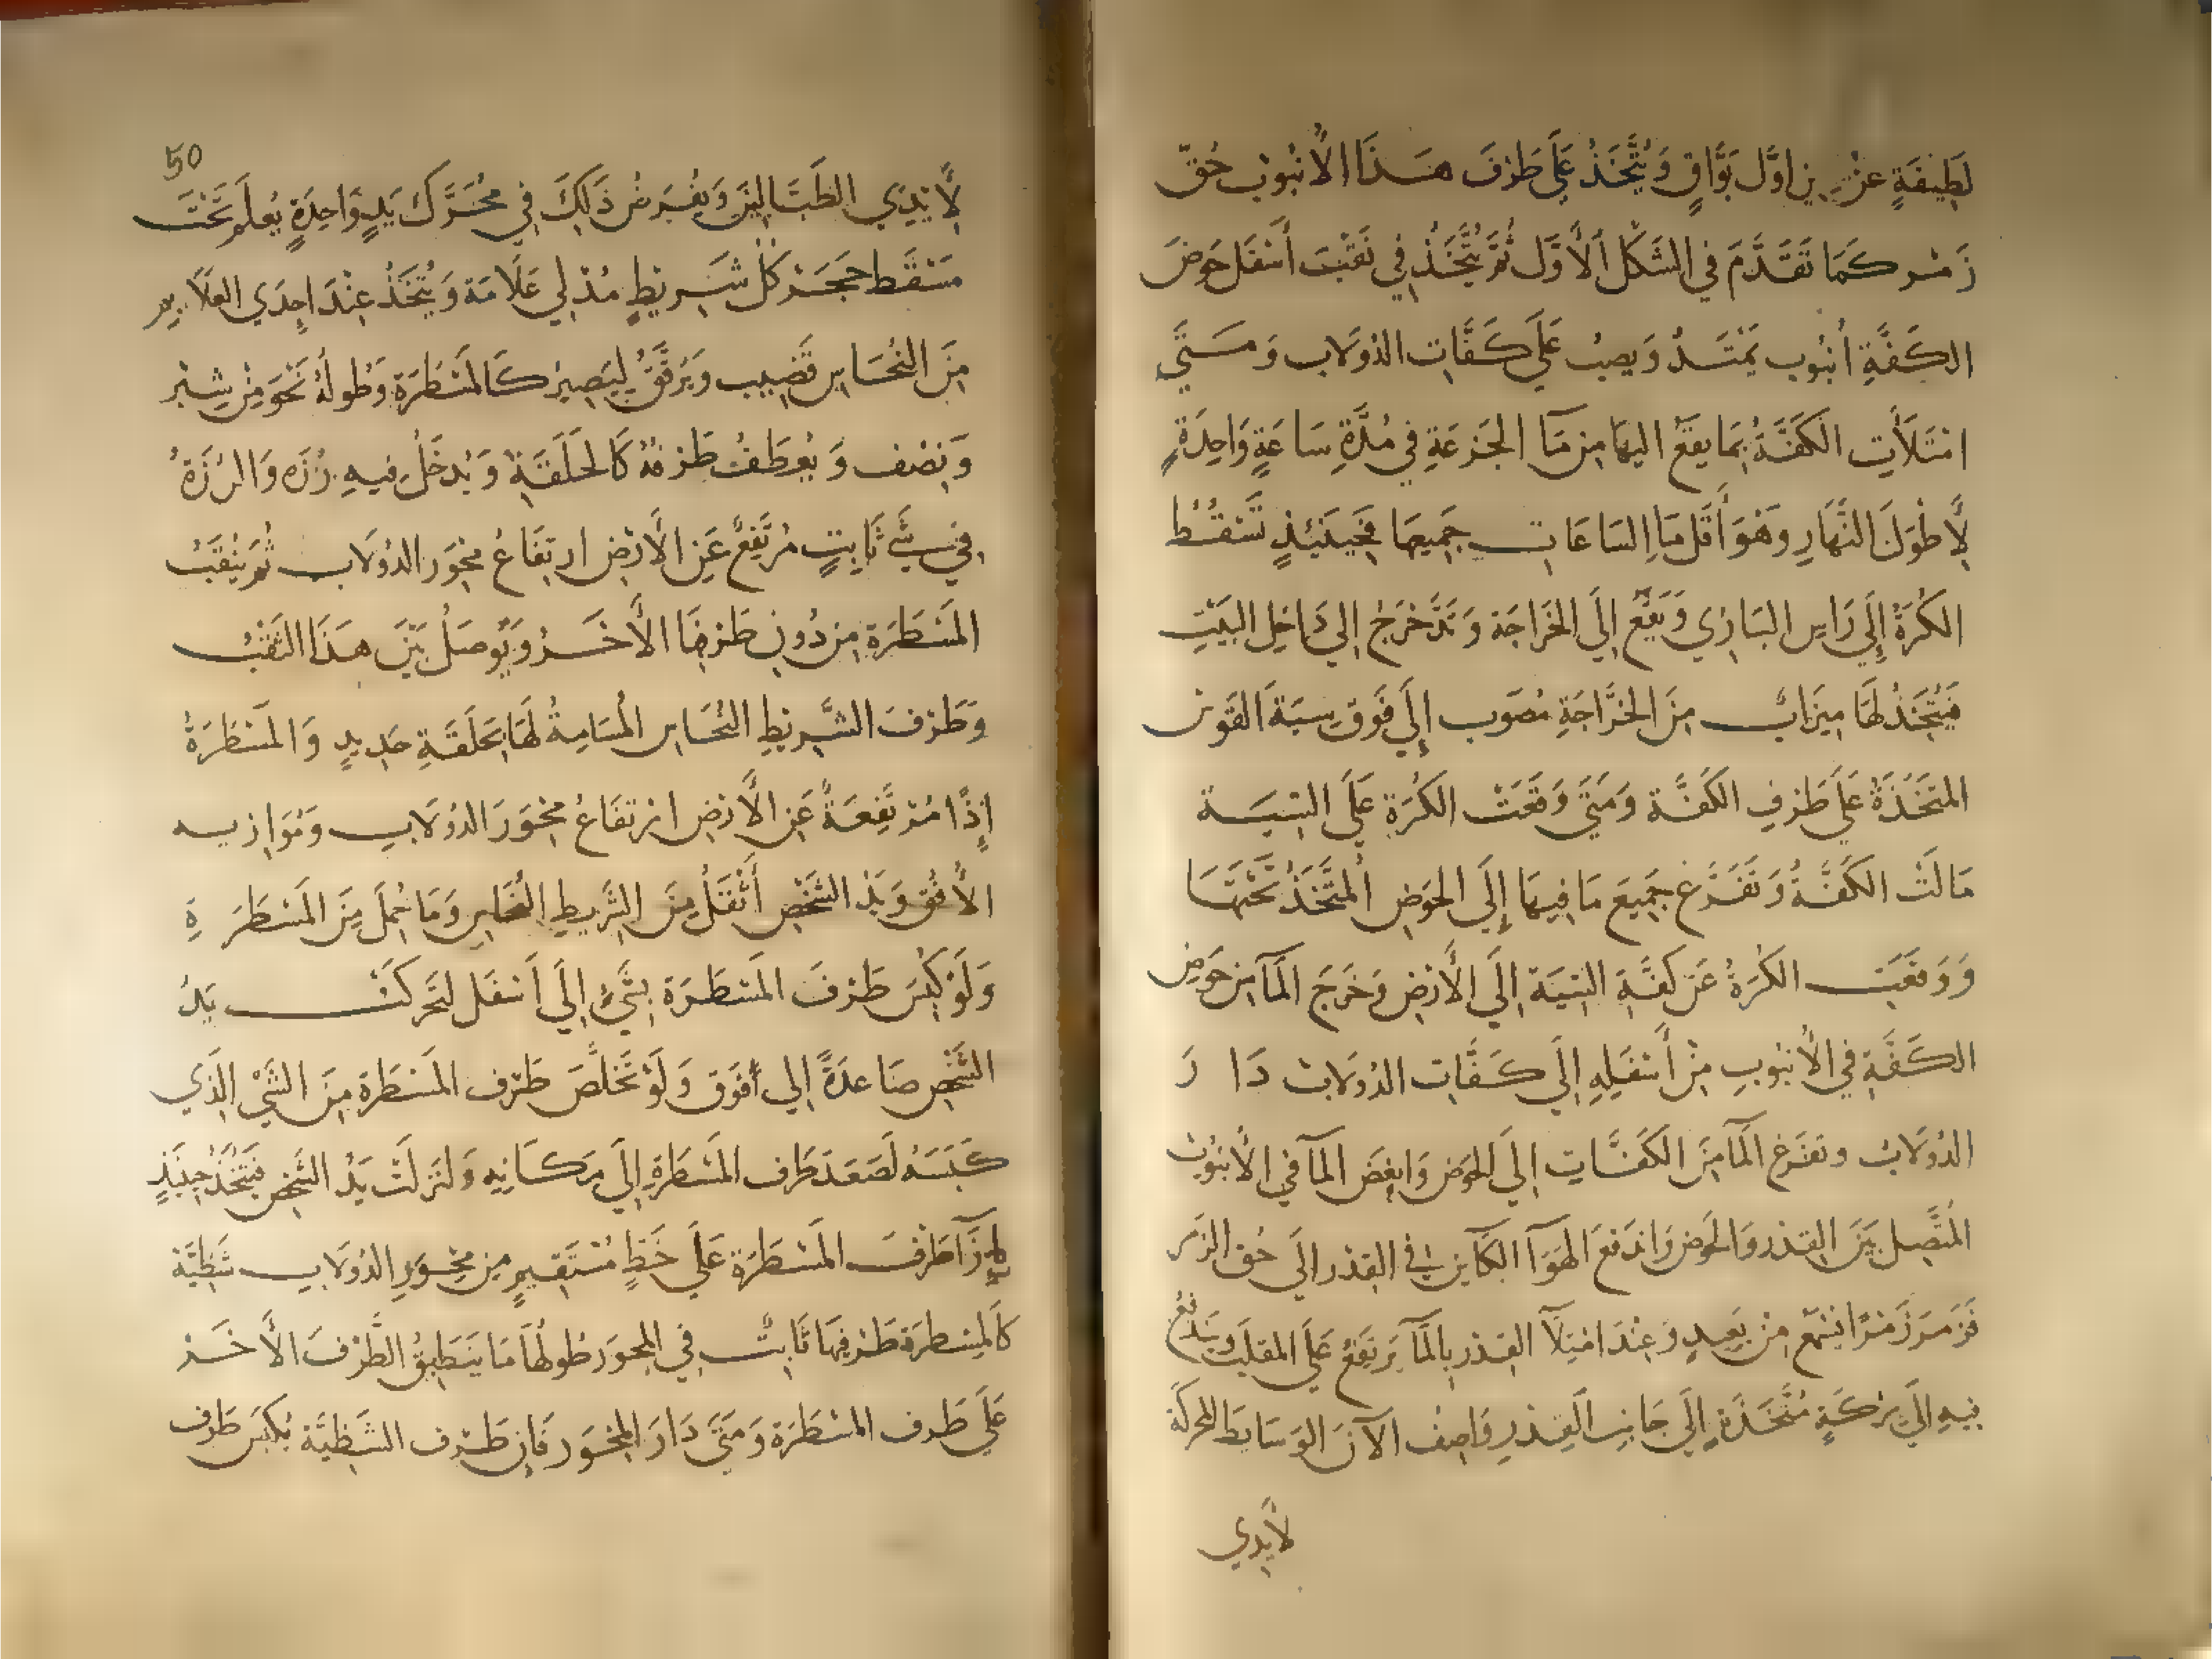 لَطِيفَةٍ عن يمين اوَّل بَوَّاقٍ وَيُتَّخَذُ عَلَى طَرَفَ هَذَا الأُنبُوب حُقّ
زَمْر كَمَا تَقَدَّمَ في الشَكْل الأوَّل ثُمَّ يُتَّخَذُ في ثَقْبَ أَسْفَل حَوضَ
الكَفَّةِ أُنبُوب يَمْتَدُّ وَيصبُ عَلَى كَفَّاتِ الدُولَاب وَمَتَى
امْتَلَأتِ الكَفَّةُ بِمَا يَقَعُ اليهَا مِن مَآ الجَزعَةِ في مُدَّةِ سَاعَةٍ وَاحِدَةٍ
لأَطْوَلَ النَّهَارِ وَهُوَ أَقَل مَاِ السَاعَاتِ جَمِيعِهَا فَحِينَئِذٍ تَسْقُطُ
الكُرَةُ إِلَى رَاسِ البَازي وَتَقَعُ إِلَى الخَراجَة وَتَدَحْرَجُ إِلى دَاخِل البَيْتِ
فَيُتَّخَذُ لَهَا مِيزَابٌ مِنَ الخَرَّاجَةِ مُصَوب إِلَى فَوق سِيَةِ القَوس
المتَّخَذَةُ عَلَى طَرفِ الكَفَّة وَمَتَى وَقَعَتْ الكُرَةِ عَلَى السِيَة
مَالَتْ الكَفَّةُ وَتَفَرَّغ جَمِيعَ مَا فيهَا إِلَى الحَوضِ المُتَّخَذُ تَحْتَهَا
وَوَقَعَتِ الكُرَةُ عَن كِفَّةِ السِيَة إِلَى الأَرْضِ وَخَرَجَ المَآ مِن حَوضِ
الكَفَّةِ في الأُنبُوبِ مِنْ أَسْفَلِهِ إِلَى كَفَّاتِ الدُولَاب دَا رَ
الدُولَابُ وتفرَغ المَآ مِنَ الكَفَّاتِ إِلَى الحَوض وَانغَمَض المَآ في الأُنبُوبُ
المُتَّصِل بَيْنَ القِدْر وَالحَوض وَاندَفَعَ الهَوَآ الكَآئِن في القِدْر الَى حُق الزمر
فَزَمرَ زَمْرًا يُسْمَع مِنْ بَعِيدٍ وَعِنْدَ امْتِلآ القِدْر بِالمَآ يَرْتَفِعُ عَلَى المقلَب وَيَندَفِعُ
فيهِ الَى بِرْكَةٍ مُتَّخَذَةٍ إِلَى جَانِبِ القِدْرِ وَاصِفُ الآنَ الوَسَايطَ المحركَة
لأيدي
50
لأَيْدِي الطَبَّالينَ وَيُفرَضُ ذَلِكَ في مُحَرَّك يَدٍ وَاحِدَةٍ يُعلَم تَحْتَ
مَسْقَط حَجَر كُل شَرِيطٍ مُدْلى عَلَامَة وَيُتَّخَذُ عِنْدَ احِدَى العَلَايم
مِنَ النُحَاسِ قَضِيب وَيُرَقَّقُ لِيَصِيرَ كَالمَسْطَرَة وَطُولُهُ نَحْوَ مِنْ شِبْر
وَنِصْف وَيُعطَفُ طَرفهُ كَالحَلَقَةِ وَيُدخَلُ فيهِ رُزَه وَالرُزَةُ
في شَيٍ ثَابِتٍ مُرتَفِعٌ عَنِ الأَرْضِ ارتِفَاعُ مِحْوَر الدُولَاب ثُمَ يُثقَبُ
المَسْطَرَة مِن دُونِ طَرفِهَا الأَخَر وَيُوصَلُ بَيْنَ هَذَا الثَقْبُ
وَطَرفَ الشَّرِيطِ النُحَاسِ المُسَامِةُ لَهَا بحَلَقَةِ حَدِيدٍ وَالمَسْطَرَةُ
إِذًا مُرْتَفِعَةً عَنِ الأَرضِ ارْتفَاعُ مِحْوَرَ الدُولَابِ ومُوَازِيه
الأُفُق وَيَدِ الشَخْصِ أَثْقَلُ مِنَ الشَّرِيطِ النُحَاسِ وَمَا حُمِلَ مِنَ المَسْطَرَ ةِ
وَلَوْ كُبِسَ طَرْفَ المَسْطَرَة بِشَيْءٍ إِلَى أَسْفَل لَتَحَركَتْ يَدُ
الشَخْصِ صَاعدَةً إِلى فَوق وَلَوْ تَخَلَّصَ طَرْف المَسْطَرة مِنَ الشَيْ الَذي
كَبَسَهُ لَصَعَدَ طَرف المَسْطَرةِ إِلَى مَكَانِهِ وَلنَزلَتْ يَدُ الشَخْصِ فَيُتَّخَذُ حِينَئِذٍ
بإِزَآ طَرْفَ المَسْطَرَة عَلَى خَطٍ مُسْتَقِيمٍ مِن مِحْوَرِ الدُولَابِ شَظِيَّة
كَالمِسْطرَة طَرفهَا ثَابِتٌ في المِحْوَر طُولُهَا مَا يَنطَبِقُ الطَّرْفَ الأَخَر
عَلَى طَرف المسْطَرَة وَمَتَى دَارَ المِحْوَر فَإِن طَرف الشَظِيَّة يُكبس طَرف